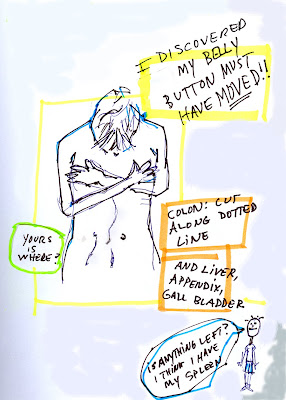 I DISCOVERED
MY BELLY
BUTTON MUST
HAVE MOVED!!
YOURS
IS
WHERE?
COLON: CUT
ALONG DOTTED
LINE
AND LIVER,
APPENDIX,
GALL BLADDER
IS ANYTHING LEFT?
I THINK I HAVE
MY SPLEEN.